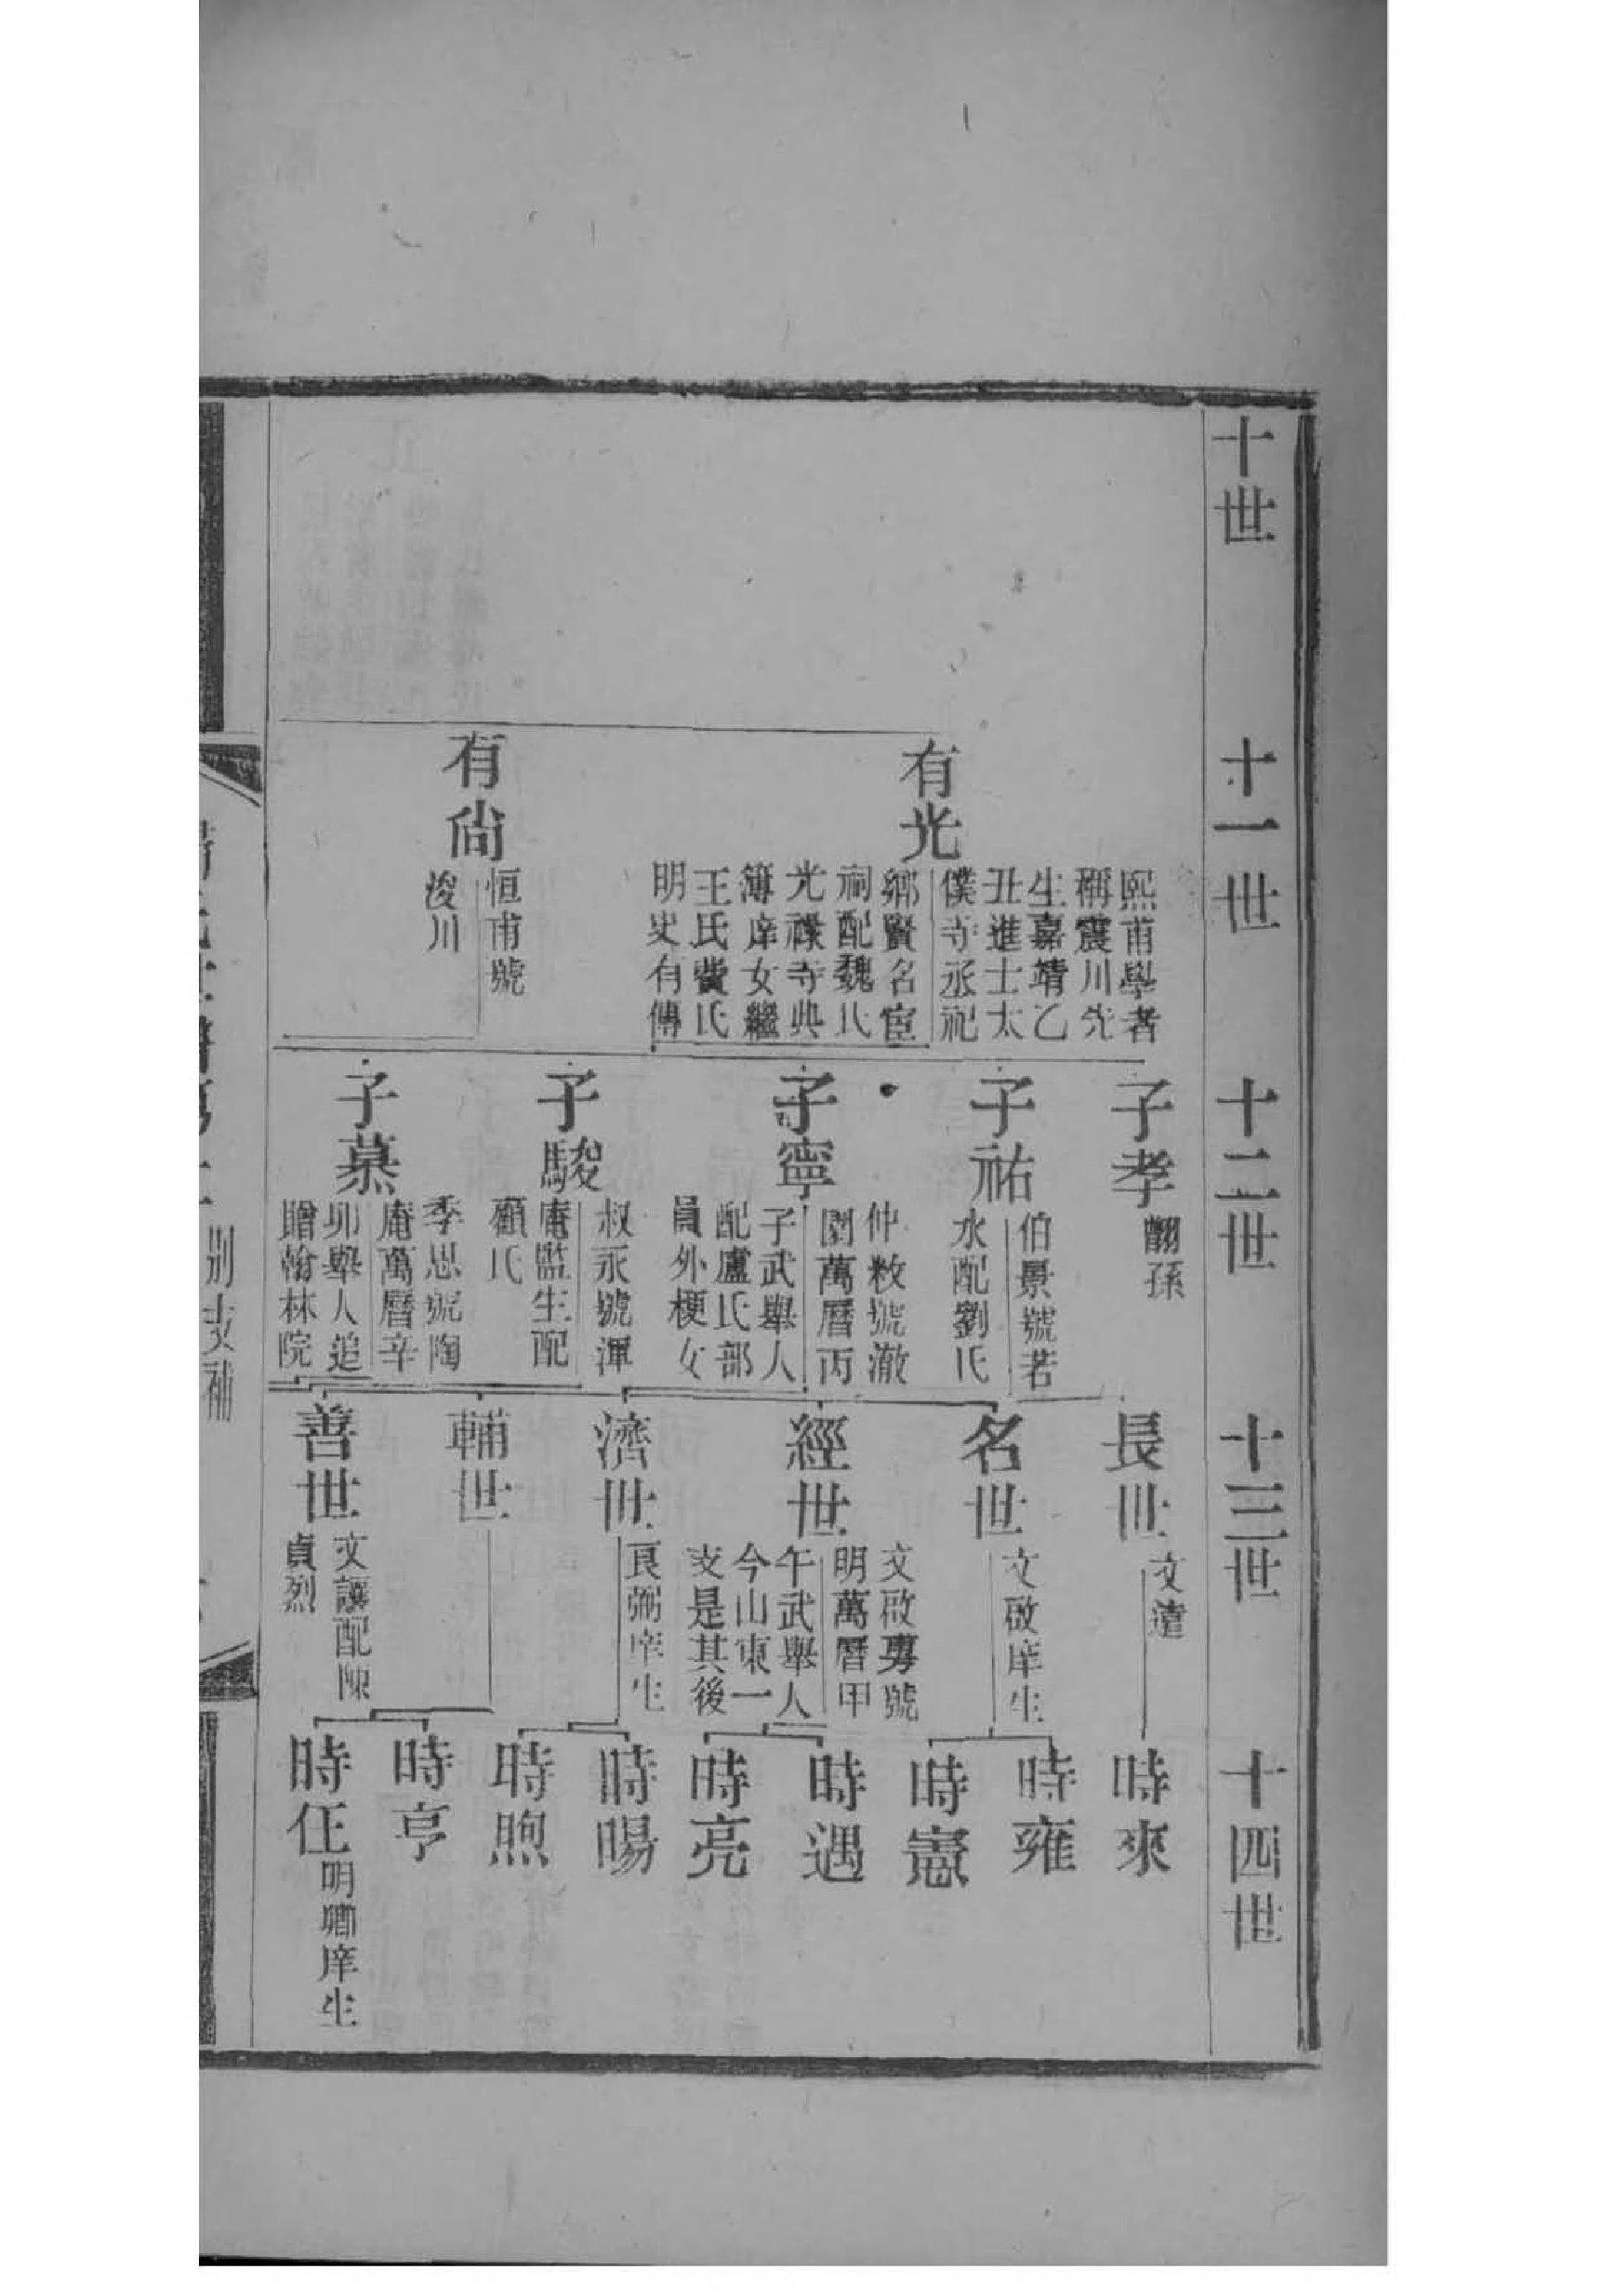 十世
十一世
十二世
十三世
十四世
有光
熙甫學者
稱震川先
生嘉靖乙
丑進士太
僕寺丞祀
鄉賢名宦
祠配魏氏
光祿寺典
簿庠女繼
王氏費氏
明史有傳
有尙
恒甫號
浚川
子孝
翿孫
子祐
伯景號若
水配劉氏
子寧
仲敉號澈
園萬曆丙
子武舉人
配盧氏部
員外梗女
子駿
叔永號渾
庵監生配
顧氏
子慕
季思號陶
庵萬曆辛
卯舉人追
贈翰林院
長世
文遠
名世
文啟庠生
經世
文啟男號
明萬曆甲
午武舉人
今山東一
支是其後
濟世
良弼庠生
輔世
善世
文讓配陳
貞烈
時來
時雍
時憲
時遇
時亮
時暘
時煦
時亨
時任
明卿庠生
別支補